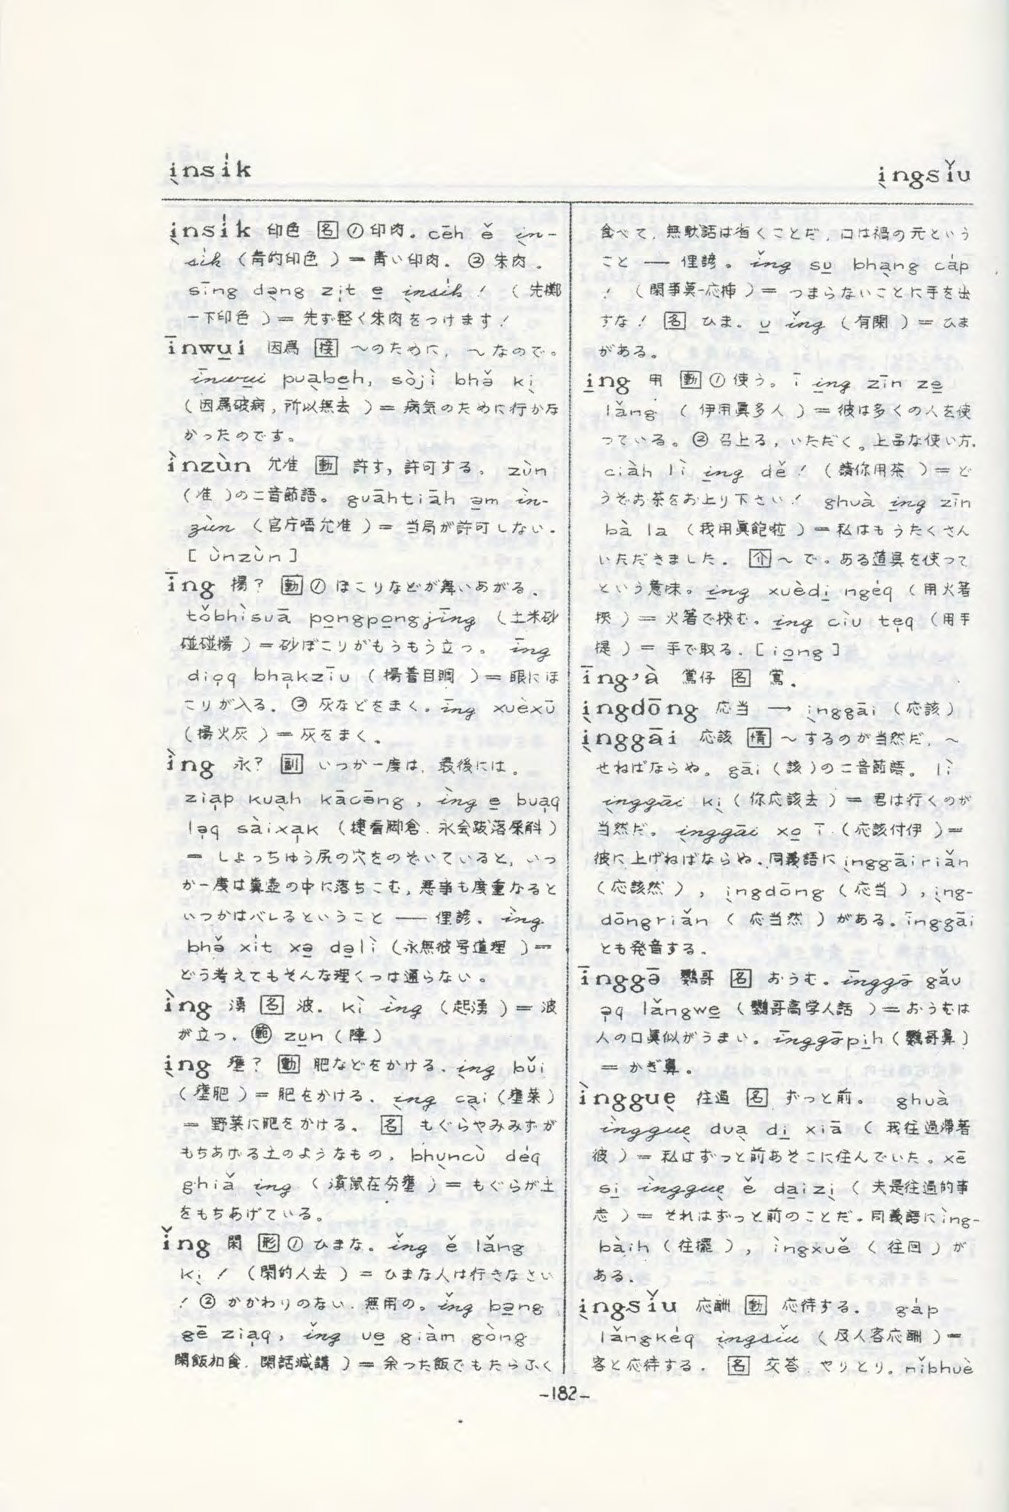 ịnsi̍k
ịngsǐu
ịnsi̍k 印色 名 ① 印肉。cēh ě ịn-
si̍k (青的印色) = 青い印肉。② 朱肉。
sīng dạng zi̍t e̱ ịnsi̍k! (先擲
一下印色) = 先ず軽く朱肉をつけます!
īnwu̱i 因爲 接 〜のために, 〜なので。
īnwu̱i puạbe̱h, sòjì bhə̌ kị
(因爲破病, 所以無去) = 病気のために行かな
かったのです。
ìnzùn 允准 動 許す, 許可する。zùn
(准)の二音節語。guāhtiāh ə̱m ìn-
zùn (官庁唔允准) = 当局が許可しない。
[ùnzùn]
īng 揚? 動 ① ほこりなどが舞いあがる。
tǒbhìsuā po̱ngpo̱ngjīng (土米砂
碰碰揚) = 砂ぼこりがもうもう立つ。īng
diọq bhạkzīu (揚着目睭) = 眼にほ
こりが入る。② 灰などをまく。īng xuèxū
(揚火灰) = 灰をまく。
ìng 永? 副 いつか一度は, 最後には。
ziạp kuạh kācəng, ìng e̱ buạq
lạq sàixạk (捷看脚倉, 永会跋落屎斛)
= しょっちゅう尻の穴をのぞいていると, いつ
か一度は糞壺の中に落ちこむ, 悪事も度重なると
いつかはバレるということ — 俚諺。ìng
bhə̌ xi̍t xə̱ də̱lì (永無彼号道理) =
どう考えてもそんな理くつは通らない。
ìng 湧 名 波。kì ìng (起湧) = 波
が立つ。範 zu̱n (陣)
ịng 壅? 動 肥などをかける。ịng bǔi
(壅肥) = 肥をかける。ịng cại (壅菜)
= 野菜に肥をかける。名 もぐらやみみずが
もちあげる土のようなもの。bhụncù de̍q
ghiǎ ịng (濆鼠在夯壅) = もぐらが土
をもちあげている。
ǐng 閑 形 ① ひまな。ǐng ě lǎng
kị! (閑的人去) = ひまな人は行きなさい
! ② かかわりのない, 無用の。ǐng bə̱ng
gē ziạq, ǐng ue̱ giàm gòng
閑飯加食, 閑話減講) = 余った飯でもたらふく
食べて, 無駄話は省くことだ, 口は禍の元という
こと — 俚諺。ǐng su̱ bhạng ca̍p
! (閑事莫-応挿) = つまらないことに手を出
すな! 名 ひま。u̱ ǐng (有閑) = ひま
がある。
i̱ng 用 動 ① 使う。ī i̱ng zīn ze̱
lǎng (伊用眞多人) = 彼は多くの人を使
っている。② 召上る, いただく。上品な使い方。
ciàh lì i̱ng dě! (請你用茶) = ど
うぞお茶をお上り下さい! ghuà i̱ng zīn
bà la (我用眞飽啦) = 私はもうたくさん
いただきました。介 〜で。ある道具を使って
という意味。i̱ng xuèdi̱ nge̍q (用火箸
挾) = 火箸で挾む。i̱ng cìu tẹq (用手
提) = 手で取る。[io̱ng]
īng'à 鶯仔 名 鶯。
ịngdōng 応当 → ịnggāi (応該)
ịnggāi 応該 情 〜するのが当然だ, 〜
せねばならぬ。gāi (該)の二音節語。lì
ịnggāi kị (你応該去) = 君は行くのが
当然だ。ịnggāi xo̱ ī (応該付伊) =
彼に上げねばならぬ。同義語に ịnggāiriǎn
(応該然), ịngdōng (応当), ịng-
dōngriǎn (応当然)がある。īnggāi
とも発音する。
īnggə̄ 鸚哥 名 おうむ。īnggə̄ gǎu
ə̣q lǎngwe̱ (鸚哥高学人話) = おうむは
人の口眞似がうまい。īnggə̄pịh (鸚哥鼻)
= かぎ鼻。
ìngguẹ 往過 名 ずっと前。ghuà
ìngguẹ duạ di̱ xiā (我往過滯着
彼) = 私はずっと前あそこに住んでいた。xē
si̱ ìngguẹ ě da̱izị (夫是往過的事
志) = それはずっと前のことだ。同義語に ìng-
bàih (往擺), ìngxuě (往回)が
ある。
ịngsǐu 応酬 動 応待する。ga̍p
lǎngke̍q ịngsǐu (及人客応酬) =
客と応待する。名 交答, やりとり。nǐbhuè
-182-